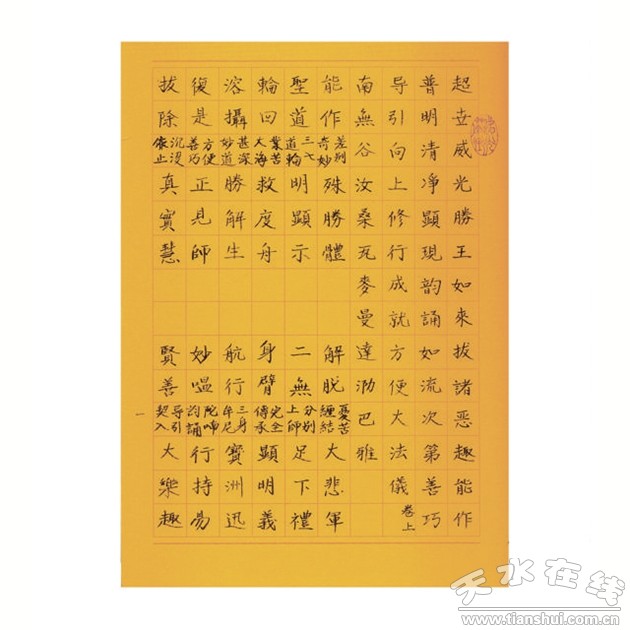 超世威光勝王如來拔諸惡趣能作
普明清淨顯現韵誦如流次第善巧
导引向上修行成就方便大法儀卷上
南無谷汝桑瓦麥曼達泐巴雅
能作差别奇妙殊勝體 解脫憂苦纏結大悲軍
聖道三六道輪明顯示 二無分别上師足下禮
輪回業苦大海救度舟 身臂完全傳承顯明義
溶攝甚深妙道勝解生 航行三身牟尼寳洲迅
復是方便善巧正見師 妙嗢陀喃韵誦行持易
拔除沉没依止真實慧 賢善导引契入大樂趣
一
天水在线
www.tianshui.com.cn